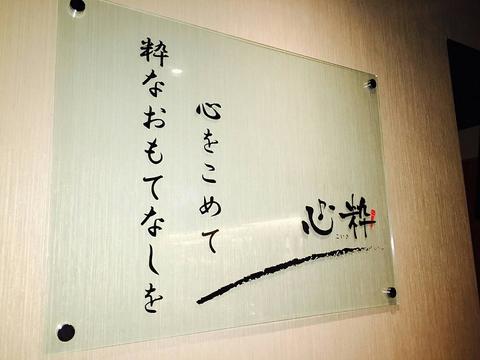 心をこめて
粋なおもてなしを
心粋
こいき